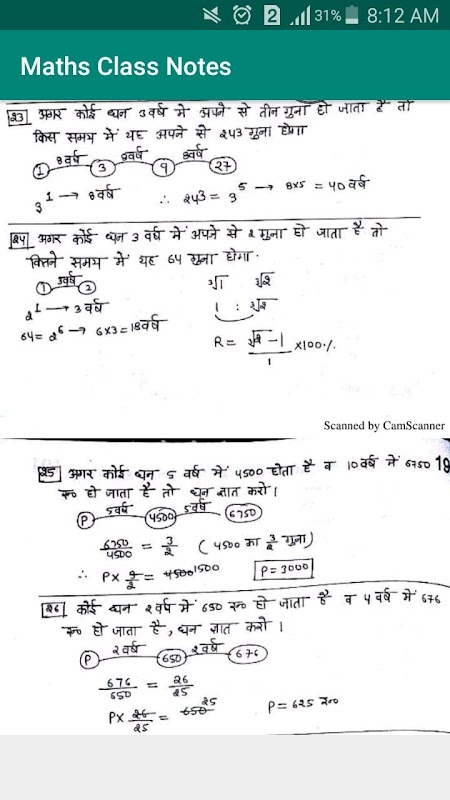 31% 8:12 AM
Maths Class Notes
23 अगर कोई धन 3 वर्ष में अपने से तीन गुना हो जाता है तो
किस समय में यह अपने से 243 गुना होगा
8वर्ष 8वर्ष 8वर्ष
1 3 9 27
3^1 → 8वर्ष ∴ 243 = 3^5 → 8x5 = 40 वर्ष
24 अगर कोई धन 3 वर्ष में अपने से 2 गुना हो जाता है तो
कितने समय में यह 64 गुना होगा.
3वर्ष
1 2 ∛1 ∛2
2^1 → 3 वर्ष 1 : ∛2
64 = 2^6 → 6x3 = 18 वर्ष R = (∛2 - 1)/1 x100%
Scanned by CamScanner
25 अगर कोई धन 5 वर्ष में 4500 होता है व 10 वर्ष में 6750 19
रू० हो जाता है तो धन ज्ञात करो।
5वर्ष 5वर्ष
P 4500 6750
6750/4500 = 3/2 (4500 का 3/2 गुना)
∴ P x 3/2 = 4500 1500 P = 3000
26 कोई धन 2 वर्ष में 650 रू० हो जाता है व 4 वर्ष में 676
रू० हो जाता है, धन ज्ञात करो।
2वर्ष 2वर्ष
P 650 676
676/650 = 26/25
P x 26/25 = 650 25 P = 625 रू०